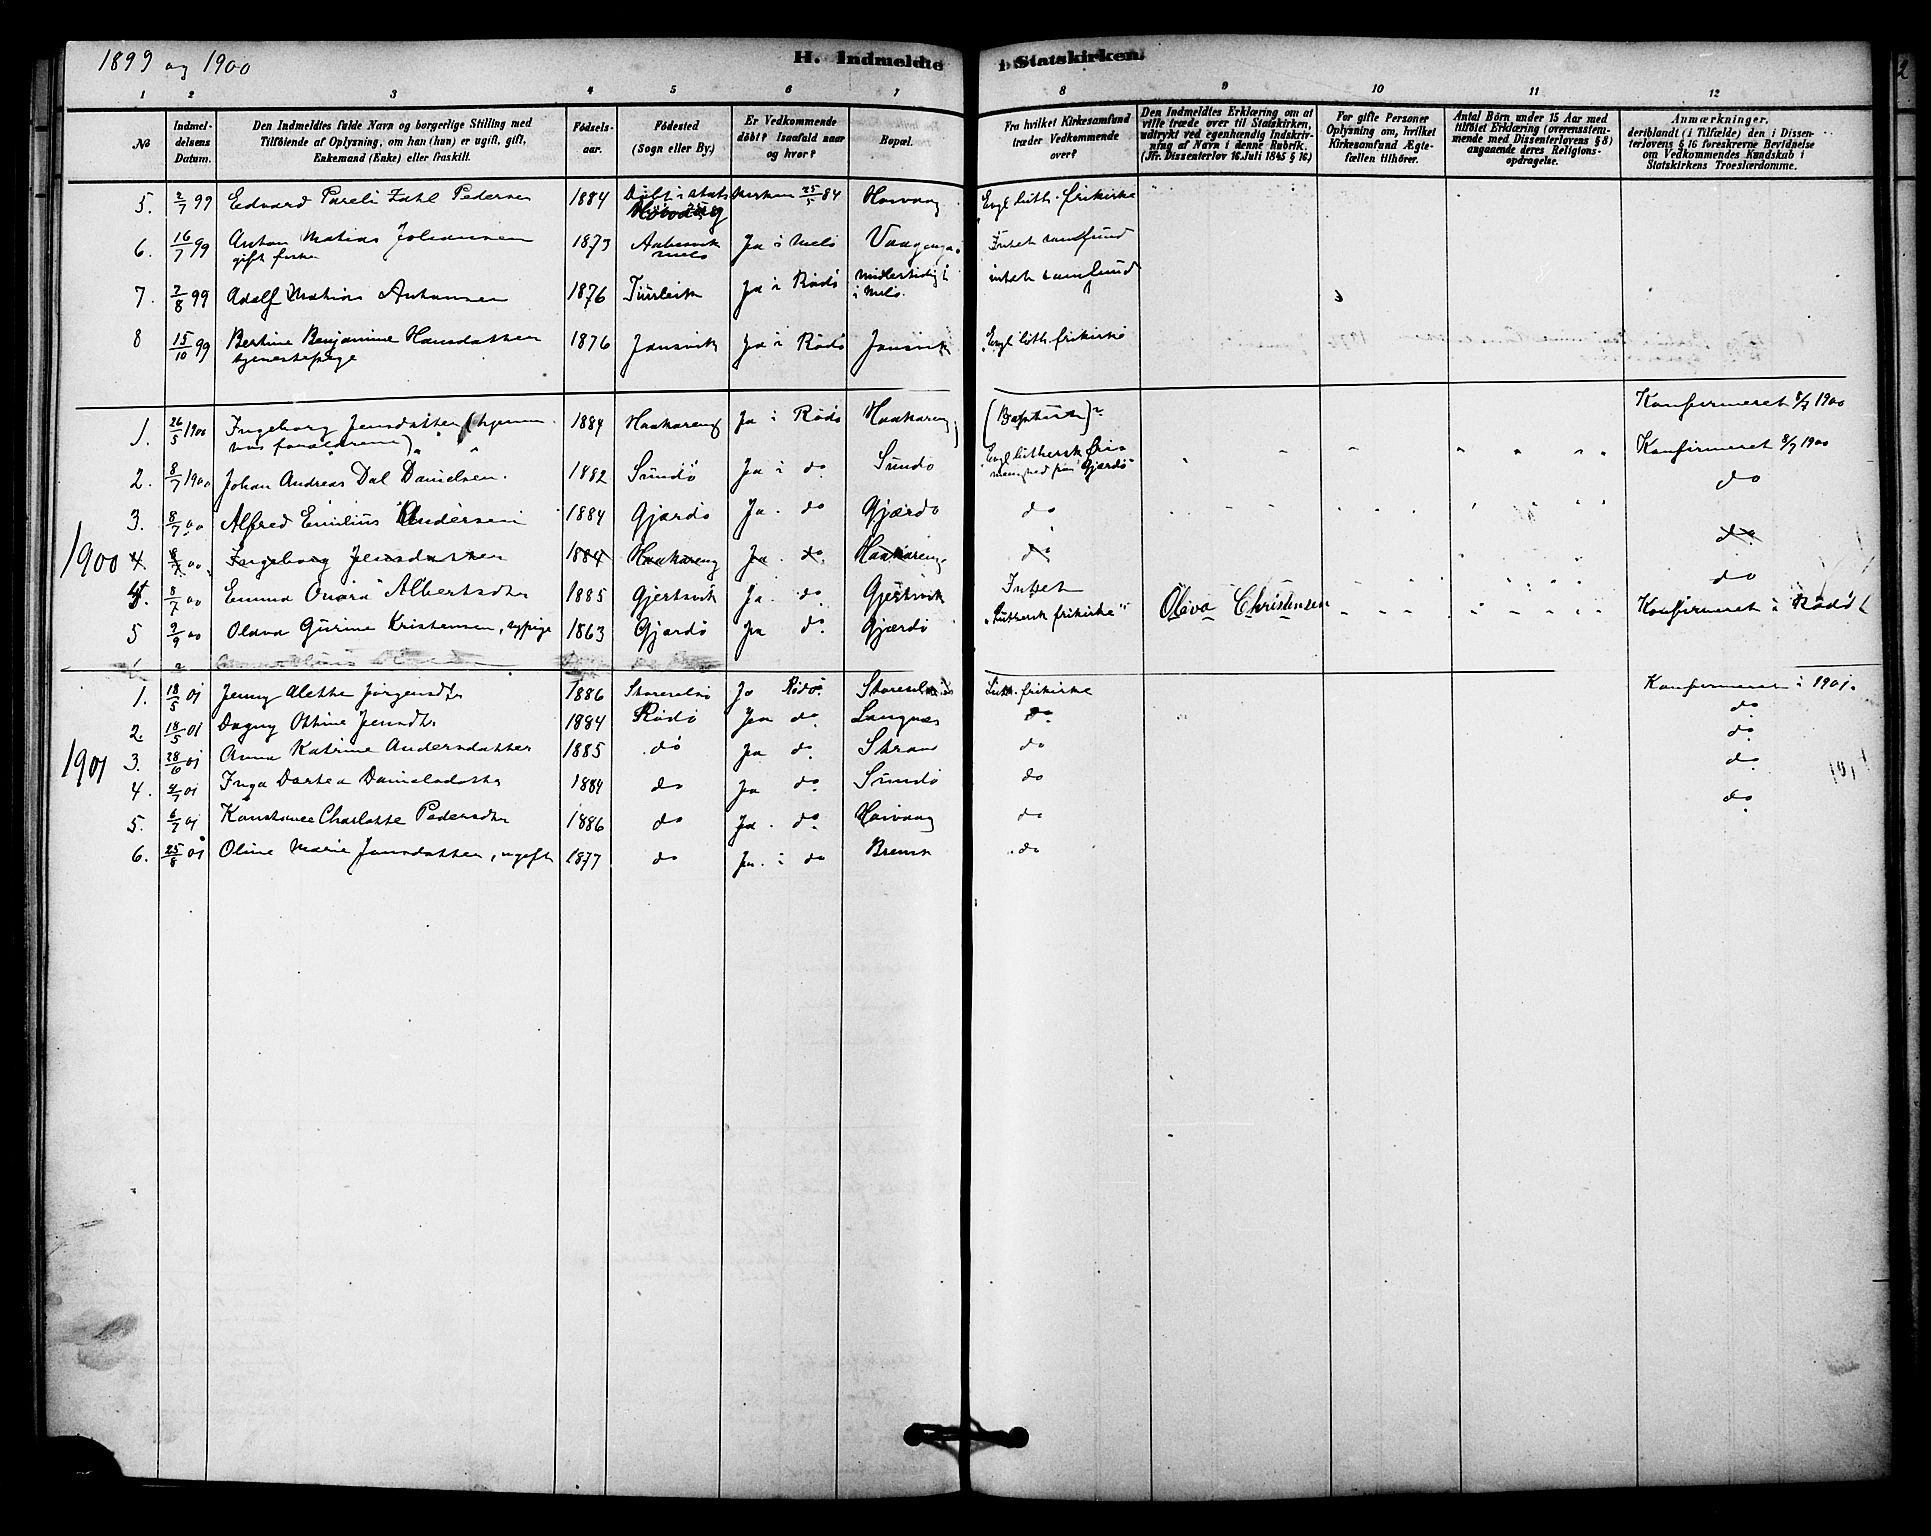 1899 og 1900
H. Indmeldte i Statskirken.
1 2 3 4 5 6 7 8 9 10 11 12
No
Indmeldelsens Datum.
Den Indmeldtes fulde Navn og borgerlige Stilling med
Tilföiende af Oplysning, om han (hun) er ugift, gift,
Enkemand (Enke) eller fraskilt.
Födselsaar.
Födested
(Sogn eller By.)
Er Vedkommende
döbt? Isaafald naar
og hvor?
Bopæl.
Fra hvilket Kirkesamfund
træder Vedkommende
over?
Den Indmeldtes Erklæring om at
ville træde over til Statskirken,
udtrykt ved egenhændig Indskriv-
ning af Navn i denne Rubrik.
(Jfr. Dissenterlov 16 Juli 1845 § 16)
For gifte Personer
Oplysning om, hvilket
Kirkesamfund Ægte-
fællen tilhörer.
Antal Börn under 15 Aar med
tilföiet Erklæring (overensstem-
mende med Dissenterlovens § 8)
angaaende deres Religions-
opdragelse.
Anmærkninger,
deriblandt (i Tilfælde) den i Dissen-
terlovens § 16 foreskrevne Bevidnelse
om Vedkommendes Kundskab i
Statskirkens Troeslærdomme.
5. 2/7 99 Edvard Pareli Zahl Pedersen 1884 Döbt i statskirken 25/5 84 Havaag Evgl. luth. frikirke
6. 16/7 99 Anton Matias Johansen 1873 Ja i Melö Intet samfund
gift
7. 2/8 99 Adolf Matias Antonsen 1876 Ja i Rödö midlertidig i Melö. intet samfund
8 15/10 99 Bertine Benjamine Hansdatter 1876 Jansvik Ja i Rödö Jansvik Evgl. luth. frikirke
tjenestepige
1. 26/5 1900 Ingeborg Jensdatter (hjemme 1884 Haakareng Ja i Rödö Haakareng (Baptist)? Konfirmeret 8/7 1900
hos forældrene)
2. 8/7 1900 Johan Andreas Dal Danielsen. 1882 Sundö Ja i do Sundö Evgl. luthersk fri- Konfirmeret 8/7 1900
menighed fra Gjærdö
3. 8/7 00 Alfred Emilius Andersen 1884 Gjærdö Ja. do Gjærdö do do
1900
4 8/7 00 Ingeborg Jensdatter 1884 Haakareng Ja. do Haakareng. do do
4. 8/7 00 Emma Albertsdtr 1885 Gjertsvik Ja. do Gjertsvik Intet do
5 2/9 00 Olava Gurine Kristensen, tjpige 1863 Gjærdö Ja do Gjærdö "Luthersk frikirke" Olava Christensen Konfirmeret i Rödö
1. 18/5 01 Jenny Alette Jørgensdtr 1886 Storeselsö Ja Rödö Luth. frikirke Konfirmeret i 1901.
2. 18/5 01 Dagny Ottine Jensdtr 1884 Rödö Ja do Langnes do do
1901
3. 28/6 01 Anna Katrine Andersdatter 1885 do Ja do Strand do do
4. 01 Inga Dortea Danielsdatter 1884 do Ja do Sundö do do
5. 6/7 01 Konstance Charlotte Pedersdtr 1886 do Ja. do Havaag do do
6. 25/8 01 Oline Marie Jansdatter, ugift 1877 do Ja. i do do